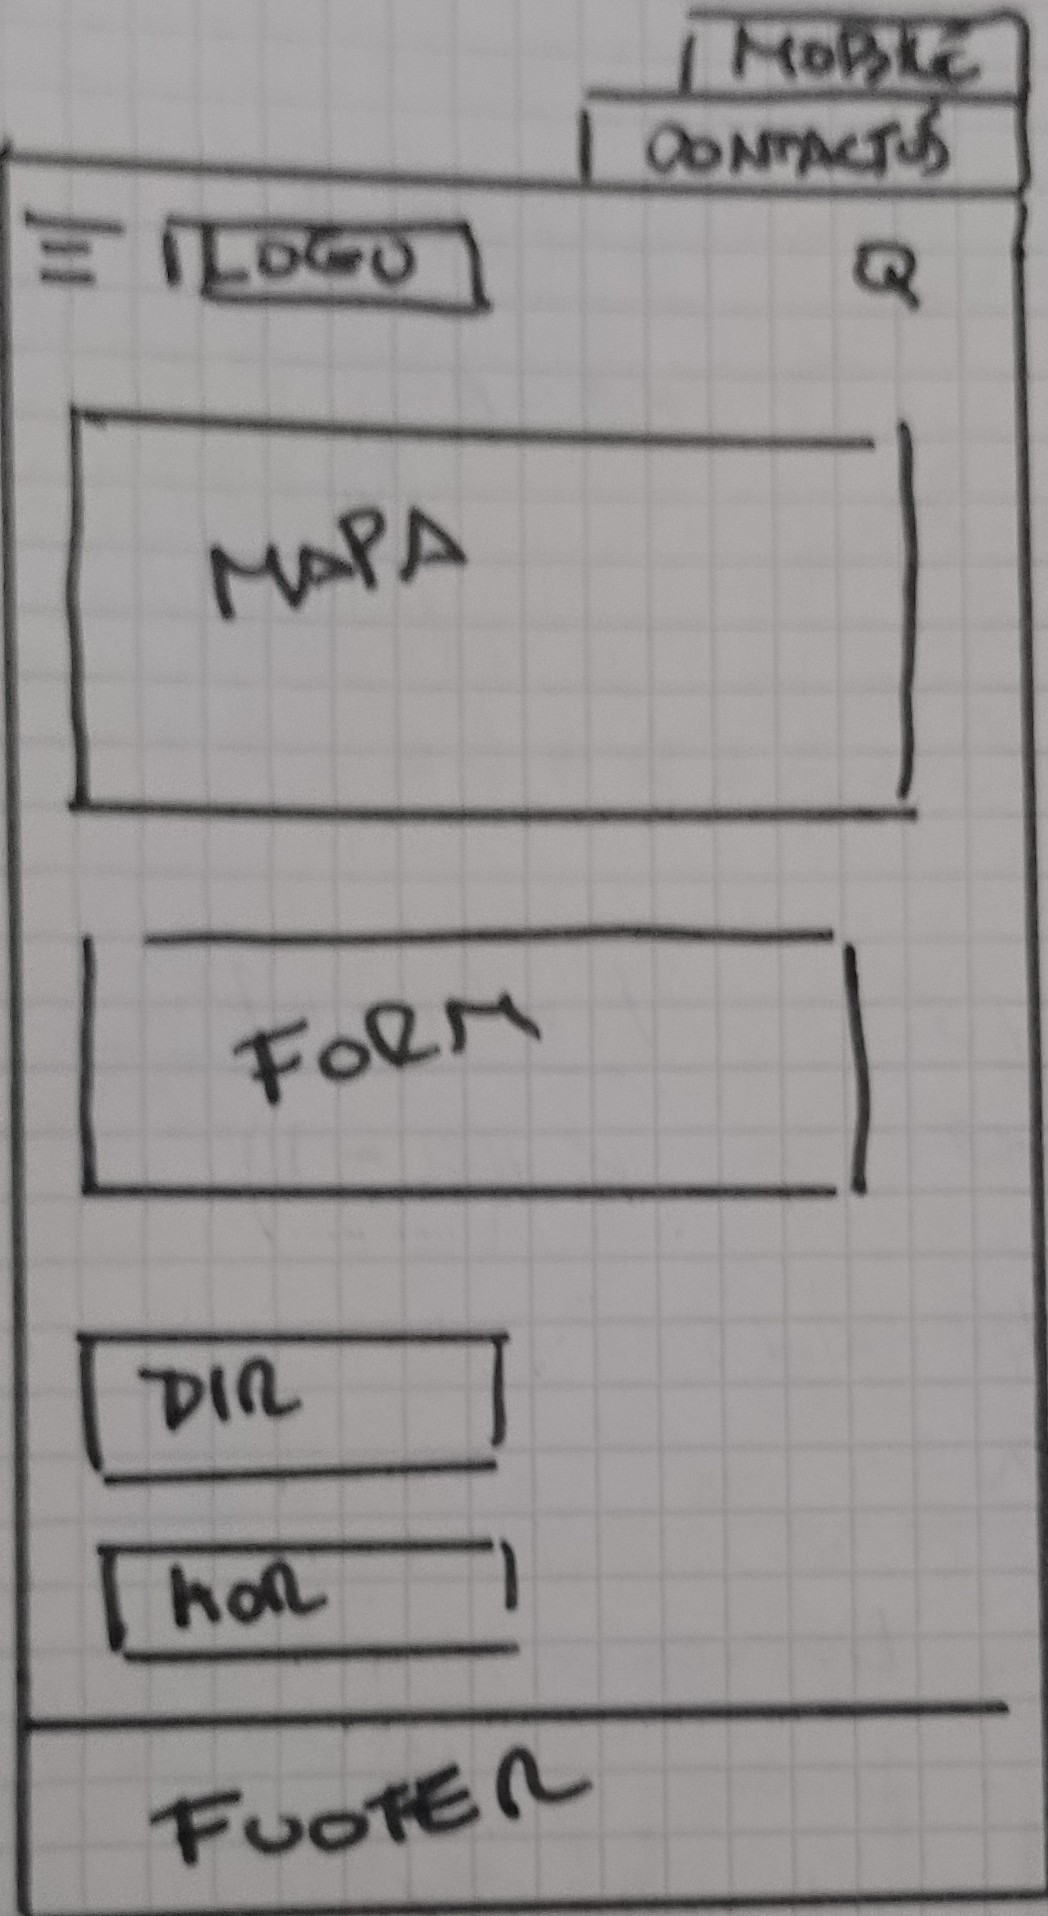 MOBILE
CONTACTUS
LOGO
MAPA
FORM
DIR
HOR
FOOTER